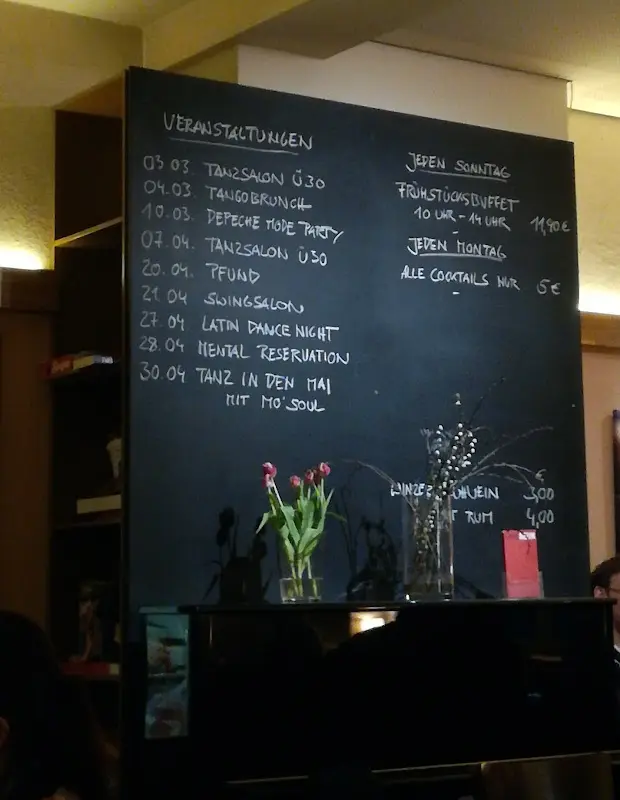 VERANSTALTUNGEN
03.03. TANZSALON Ü30
04.03. TANGOBRUNCH
10.03. DEPECHE MODE PARTY
07.04. TANZSALON Ü30
20.04. PFUND
21.04 SWINGSALON
27.04 LATIN DANCE NIGHT
28.04 MENTAL RESERVATION
30.04 TANZ IN DEN MAI
MIT MO'SOUL
JEDEN SONNTAG
FRÜHSTÜCKSBUFFET
10 UHR - 14 UHR 11,90 €
JEDEN MONTAG
ALLE COCKTAILS NUR 5 €
€
3,00
RUM 4,00